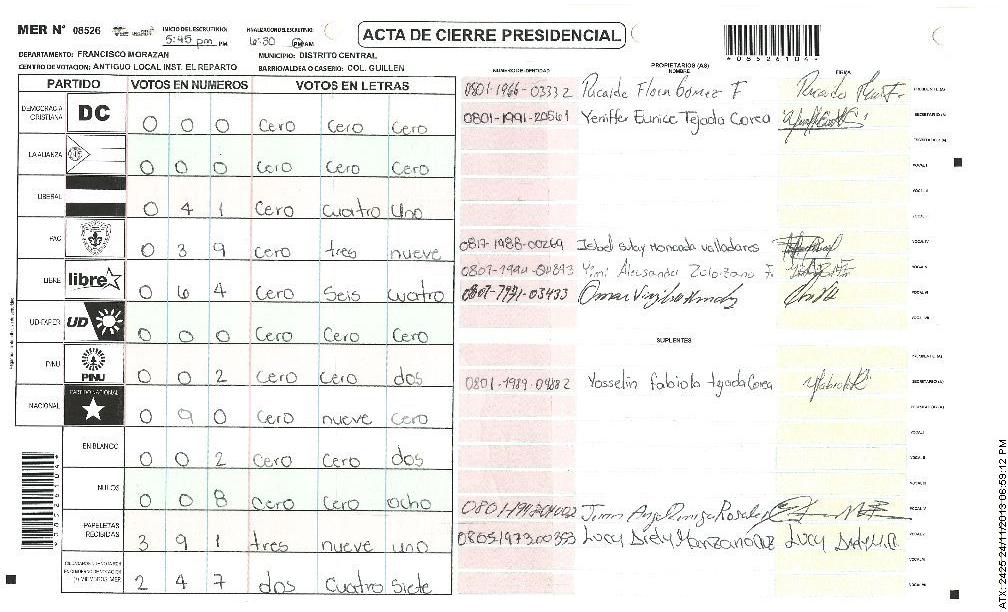 MER N° 08526
INICIO DEL ESCRUTINIO: 5:45 pm PM
FINALIZACION DEL ESCRUTINIO: 6:30 PM AM
ACTA DE CIERRE PRESIDENCIAL
DEPARTAMENTO: FRANCISCO MORAZAN
MUNICIPIO: DISTRITO CENTRAL
CENTRO DE VOTACION: ANTIGUO LOCAL INST. EL REPARTO
BARRIO/ALDEA O CASERIO: COL. GUILLEN
*08526104*
PARTIDO VOTOS EN NUMEROS VOTOS EN LETRAS
DEMOCRACIA CRISTIANA DC 0 0 0 Cero Cero Cero
LA ALIANZA 0 0 0 Cero Cero Cero
LIBERAL 0 4 1 Cero Cuatro Uno
PAC 0 3 9 Cero tres nueve
LIBRE libre 0 6 4 Cero Seis Cuatro
UD-FAPER UD 0 0 0 Cero Cero Cero
PINU PINU 0 0 2 Cero Cero dos
NACIONAL PARTIDO NACIONAL 0 9 0 Cero nueve Cero
EN BLANCO 0 0 2 Cero Cero dos
NULOS 0 0 8 Cero Cero ocho
PAPELETAS RECIBIDAS 3 9 1 tres nueve uno
2 4 7 dos Cuatro Siete
NUMERO DE IDENTIDAD
PROPIETARIOS (AS)
NOMBRE
FIRMA
0801-1966-03332 Ricardo Flores Gomez F PRESIDENTE (A)
0801-1991-20561 Yeniffer Eunice Tejada Corea SECRETARIO (A)
ESCRUTADOR (A)
VOCAL I
VOCAL II
VOCAL III
0817-1988-00269 Moncada Valladares VOCAL IV
VOCAL V
Omar VOCAL VI
VOCAL VII
SUPLENTES
PRESIDENTE (A)
0801-1989-04682 Yosselin Fabiola tejada Corea SECRETARIO (A)
ESCRUTADOR (A)
VOCAL I
VOCAL II
VOCAL III
VOCAL IV
0805197300353 Lucy Lucy VOCAL V
VOCAL VI
VOCAL VII
ATX: 2425-24/11/2013-06:59:12 PM